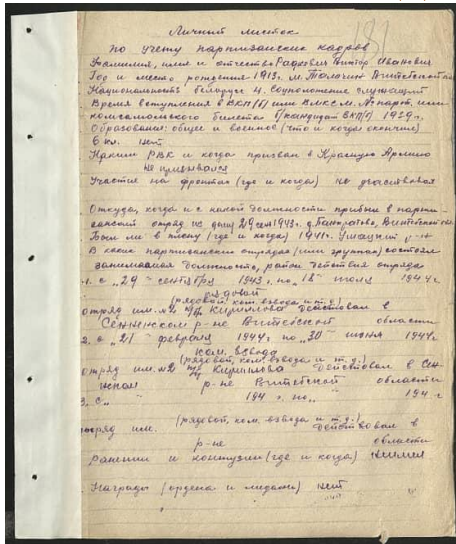 181
Личный листок
по учету партизанских кадров
Фамилия, имя и отчество Радкевич Виктор Иванович
Год и место рождения 1913. м. Толочин Витебской
Национальность белорус 4. Соцположение служащий
Время вступления в ВКП/б/ или ВЛКСМ, № парт. или
комсомольского билета б/кандидат ВКП/б/ 1939 г.
Образование: общее и военное (что и когда окончил)
6 кл. нет
Каким РВК и когда призван в Красную Армию
не призывался
Участие на фронтах (где и когда) не участвовал
Откуда, когда и с какой должности прибыл в парти-
занский отряд из 29 сен 1943 г. д. Витебской
Был ли в плену (где и когда) 1941 г.
В каких партизанских отрядах (или группах) состоял
занимаемая должность, район действия отряда
1. с „29" сентября 1943 г. по „18" 1944 г.
рядовой
(рядовой, ком. взвода и т.д.)
отряд им. №2 Кириллова действовал в
Сенненском р-не Витебской области
2. с „21" февраля 1944 г. по „30" июня 1944 г.
ком. взвода
(рядовой, ком. взвода и т.д.)
отряд им. №2 Кириллова действовал в Сен-
ненском р-не Витебской области
3. с „ " 194 г. по „ " 194 г.
(рядовой, ком. взвода и т.д.)
отряд им. действовал в
р-не области
Ранения и контузии (где и когда) не имел
Награды (ордена и медали) нет